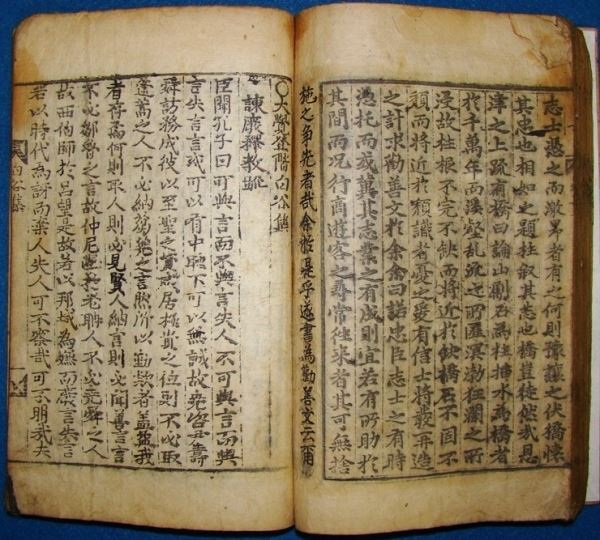 志士憑之而激昂者有之何則豫讓之伏橋懷
其忠也相如之題柱叙其志也橋豈徒然哉恩
津之上有橋曰論山斸石爲柱揷水爲橋者
於千萬年而溪壑乱流之所匯溟渤狂瀾之所
浸故柱根不完不缺而將近於缺橋石不固不
頹而將近於頹識者憂之爰有信士將發再造
之計求勸善文於余余曰諾忠臣志士之有時
憑托而或冀其志業之有成則宜若有所助於
其間而况行商遊客之尋常徃來者其可無捨
施之争先者哉余於是乎遂書爲勸善文云爾
○大覺登階白谷集
諫廢釋教䟽
臣聞孔子曰可與言而不與言失人不可與言而與
言失言言或可以有中聽下可以無誠故堯咨尹壽
舜訪務成彼以至聖之資或居極貴之位則不必取
蓬蒿之人不必納蒭蕘之言然所以勤者盖我
者苻焉何則取人則必見賢人納言則必聞善言言
不必鄒魯之言故仲尼老聃人不必舜之人
故西伯師於呂望是故若以那域爲嫌而廢言言
若以時代爲訝而棄人失人可不察哉可不明哉夫
白谷集